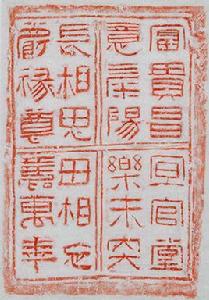 富貴昌宜宮堂
意气陽樂未央
長相思毋相忘
爵祿尊壽萬年